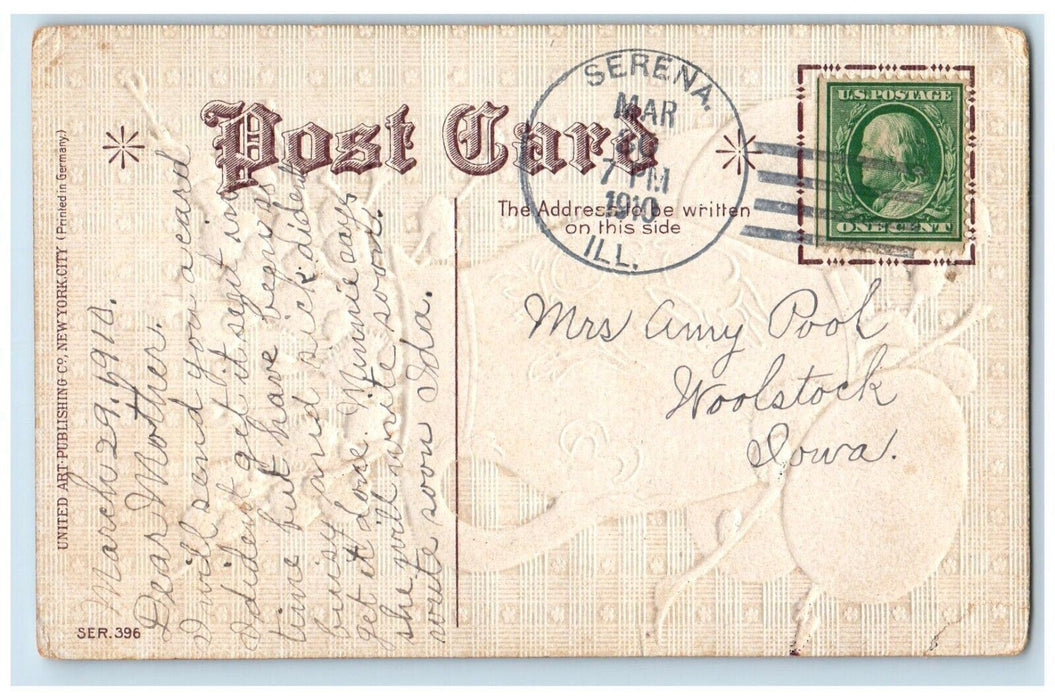 Post Card
SERENA.
MAR
7 PM
1910
ILL.
U.S. POSTAGE
ONE CENT
The Address to be written
on this side
UNITED ART PUBLISHING Cº, NEW YORK, CITY (Printed in Germany.)
SER. 396
March 29, 1910.
Dear Mother.
I will send you a card
I dident get it sent in
time but have been
busy and sick dident
get it done. Minnie says
she will write soon.
write soon Ida.
Mrs Amy Pool
Woolstock
Iowa.